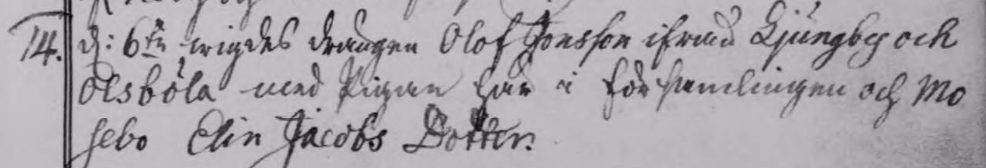 14. d: 6te wigdes drängen Olof Jonsson ifrån Ljungby och
Olsböla med Pigan här i Församlingen och Mo
sebo Elin Jacobs Dotter.